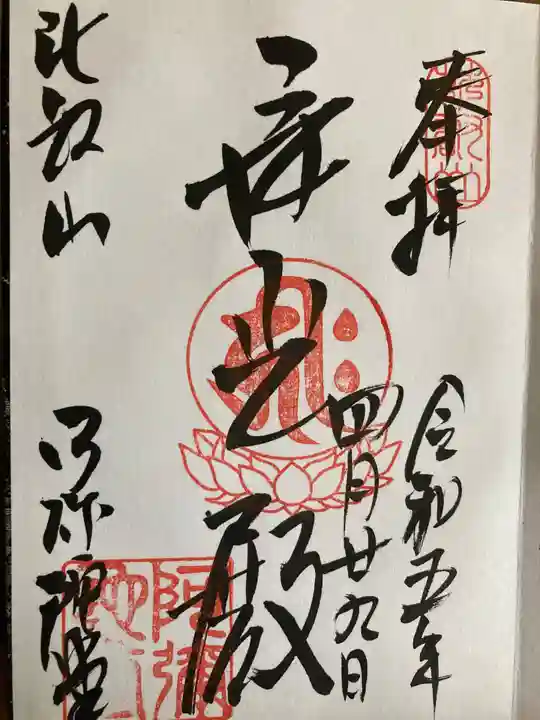 奉拝
令和五年
四月廿九日
光殿
比叡山
阿弥陀堂
阿彌